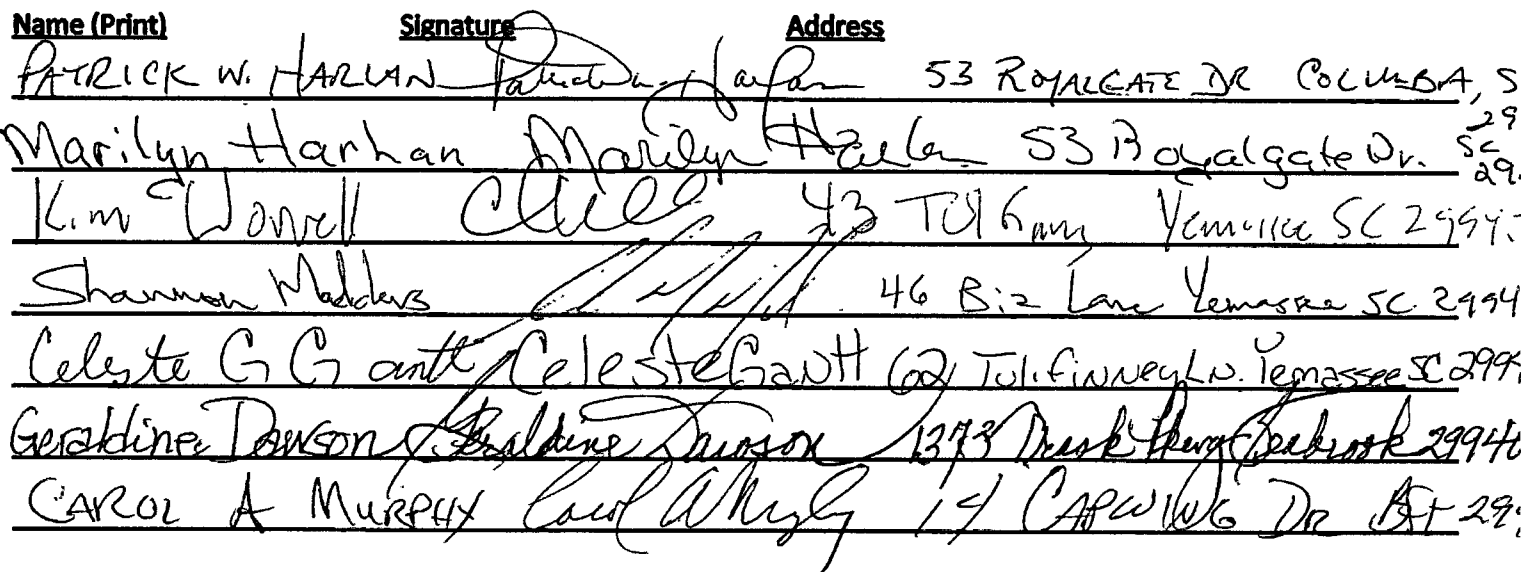 Name (Print) Signature Address
PATRICK W. HARLAN Patrick W Harlan 53 ROYALGATE DR COLUMBIA, S
29
Marilyn Harlan Marilyn Harlan 53 Royalgate Dr. SC
29
Kim Worrell 43 Yemassee SC 2994
Shannon Madders 46 Biz Lane Yemassee SC 2994
Celeste G Gantt Celeste Gantt 62 Tulifinney Ln. Yemassee SC 299
Geraldine Dawson Geraldine Dawson 1373 Seabrook 29940
CAROL A MURPHY Carol A Murphy 14 CAPWING DR Bft 29